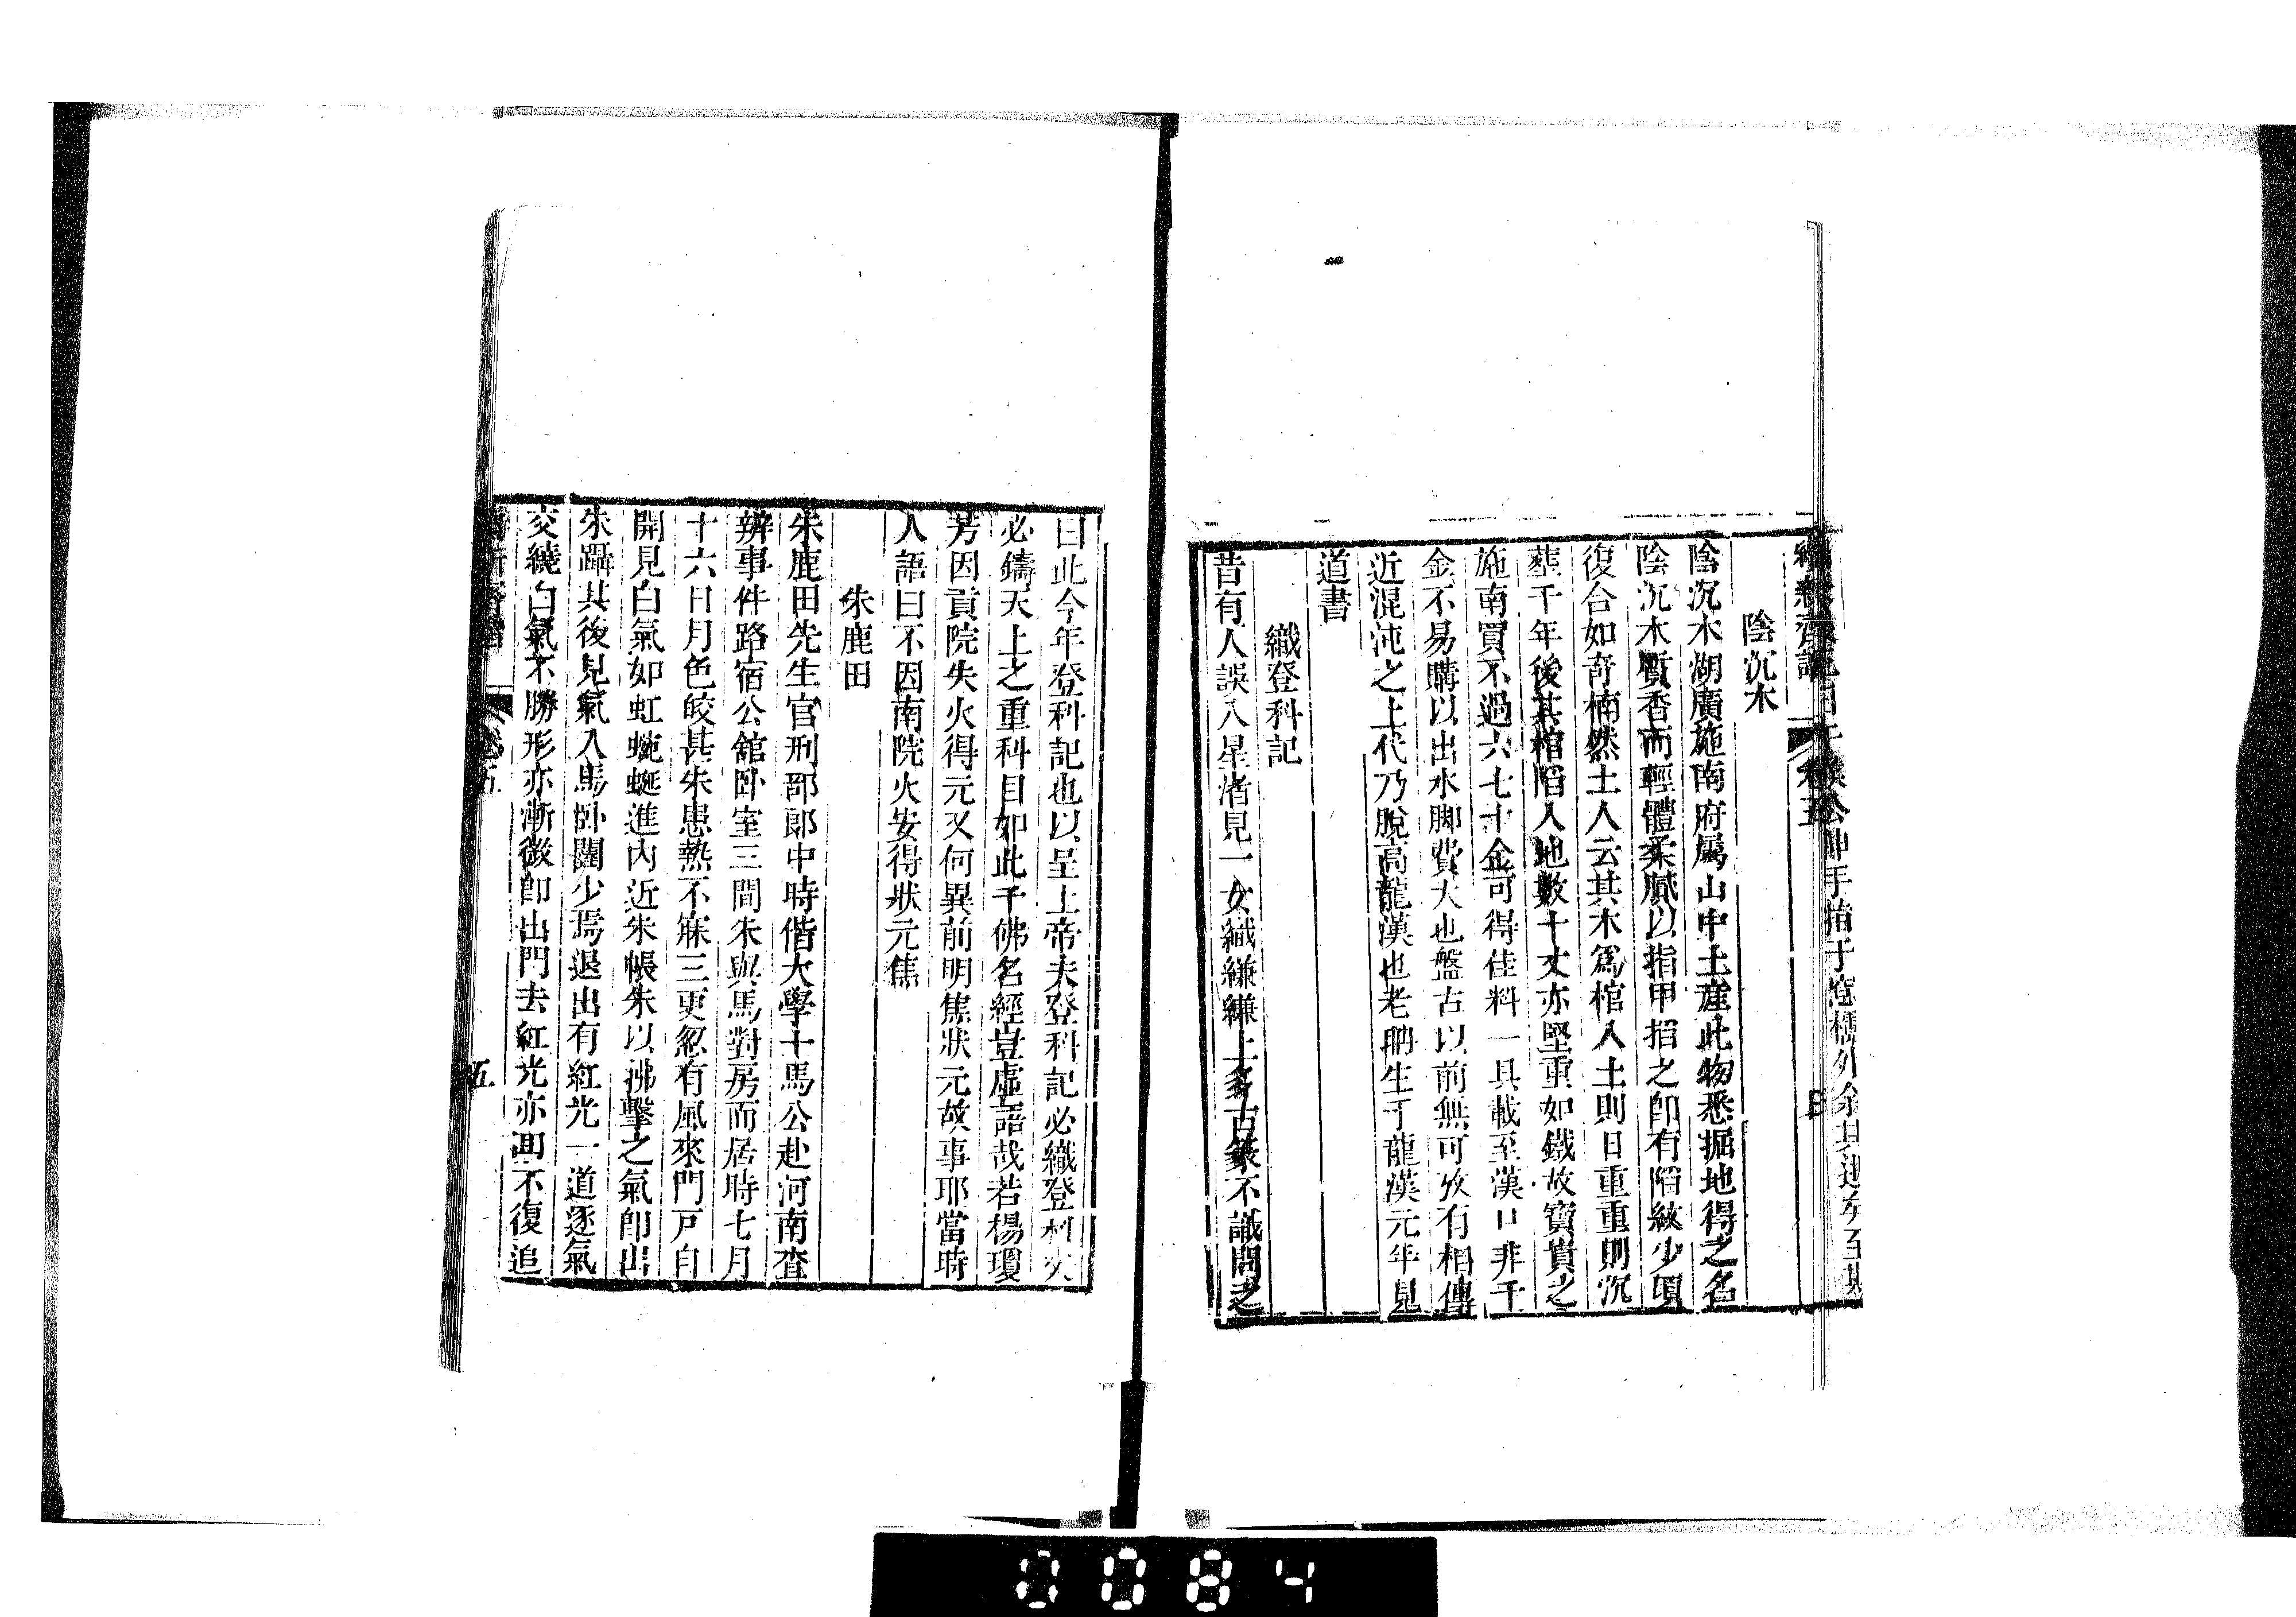 陰沉木
陰沉木湖廣施南府屬山中土產此物悉掘地得之名
陰沉木質香而輕體柔膩以指甲掐之即有陷紋少頃
復合如奇楠然土人云其木爲棺入土則日重重則沉
葬千年後其棺陷入地數十丈亦堅重如鐵故寶貴之
施南買不過六七十金可得佳料一具載至漢口非千
金不易購以出水脚費大也盤古以前無可攷有相傳
近混沌之上代乃脫高龍漢也老聃生于龍漢元年見
道書
織登科記
昔有人誤入星渚見一女織縑縑上多古篆不識問之
曰此今年登科記也以呈上帝夫登科記必織登科火
必鑄天上之重科目如此千佛名經豈虛語哉若楊瓊
芳因貢院失火得元又何異前明焦狀元故事耶當時
人語曰不因南院火安得狀元焦
朱鹿田
朱鹿田先生官刑部郎中時偕大學士馬公赴河南查
辨事件路宿公舘卧室三間朱與馬對房而居時七月
十六日月色皎甚朱患熱不寐三更忽有風來門戸自
開見白氣如虹蜿蜒進內近朱帳朱以拂擊之氣卽出
朱躡其後見氣入馬卧闥少焉退出有紅光一道逐氣
交繞白氣不勝形亦漸微卽出門去紅光亦回不復追
卷五
五
0084